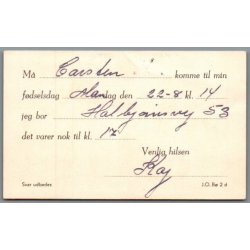 Må Carsten komme til min
fødselsdag Mandag den 22-8 kl. 14
jeg bor Halbjørnsvej 53
det varer nok til kl. 17
Venlig hilsen
Kaj
Svar udbedes
J.O. Bie 2 d